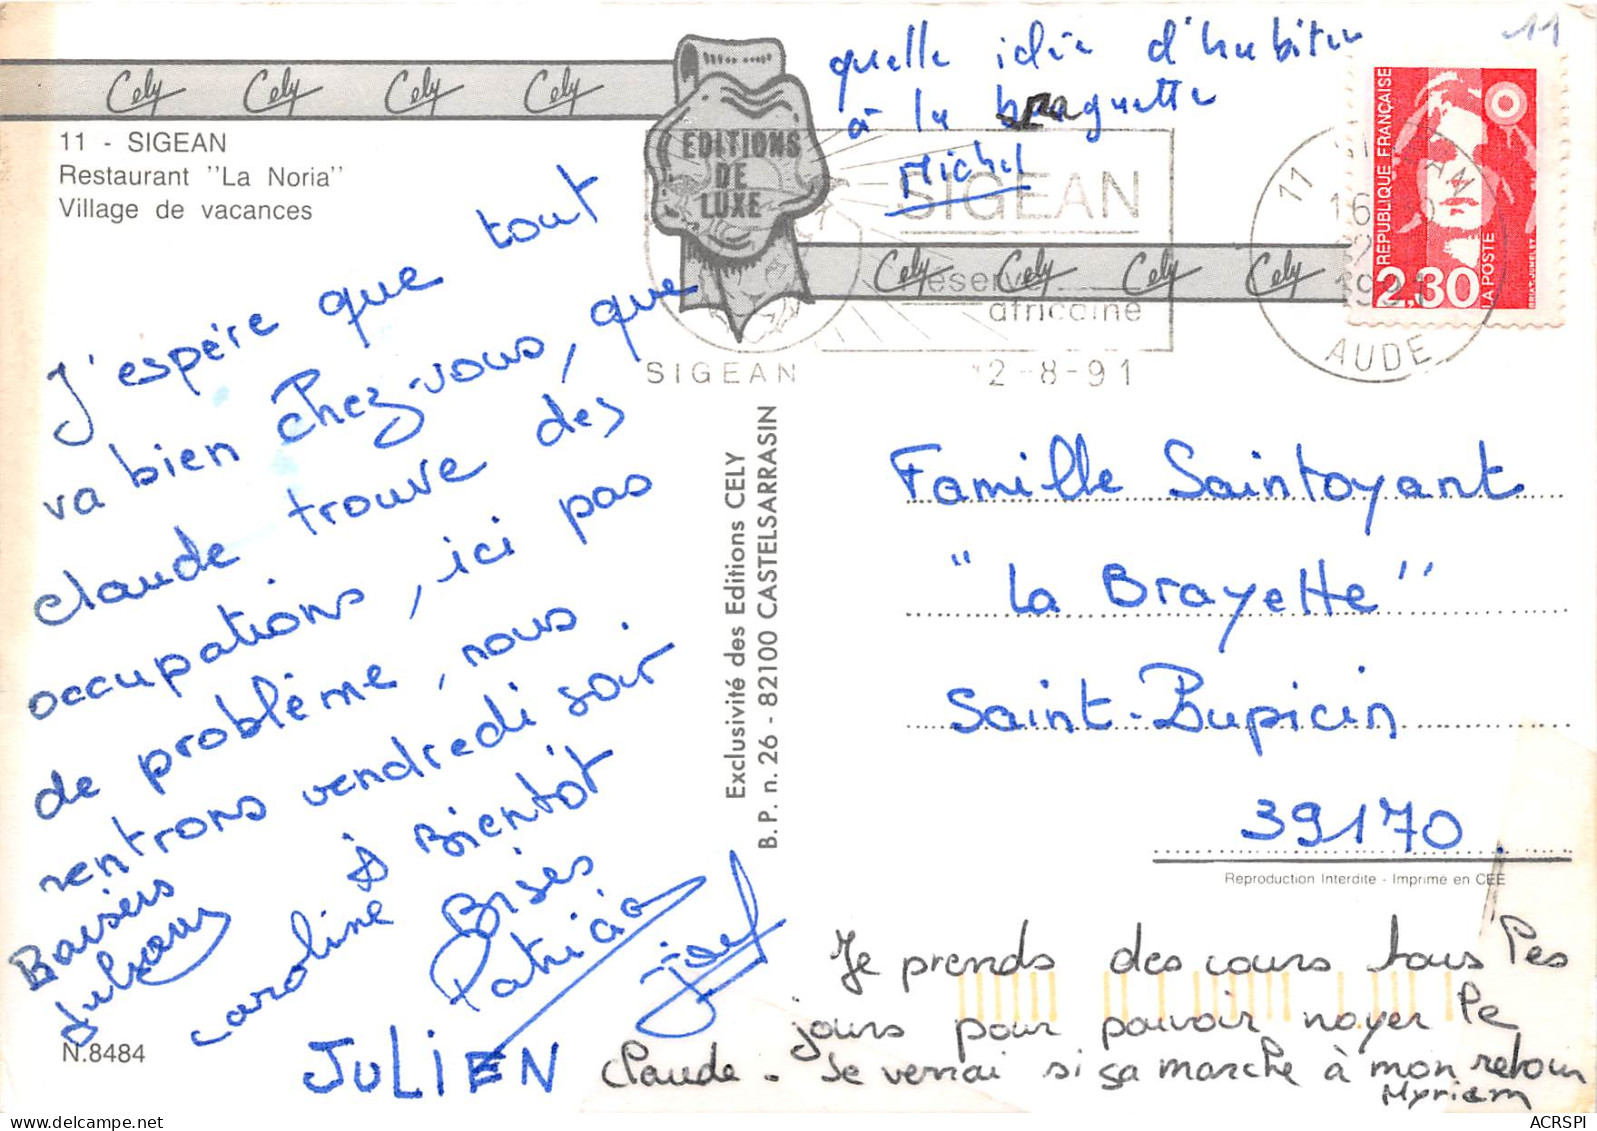 Cely Cely Cely Cely
11 - SIGEAN
Restaurant "La Noria"
Village de vacances
EDITIONS
DE
LUXE
quelle idée d'habiter
à la braguette
Michel
11
SIGEAN
réserve
africaine
SIGEAN
2-8-91
Cely Cely Cely Cely
11 SIGEAN
1991
AUDE
REPUBLIQUE FRANÇAISE
2,30
LA POSTE
BRIAT-JUMELET
J'espère que tout
va bien chez-vous, que
claude trouve des
occupations, ici pas
de problème, nous
rentrons vendredi soir.
à Bientôt
Baisers
caroline
Bises
Patricia
JULIEN
N.8484
Exclusivité des Editions CELY
B.P. n. 26 - 82100 CASTELSARRASIN
Famille Saintoyant
"La Brayette"
Saint-Lupicin
39170.
Reproduction Interdite - Imprimé en CEE
Je prends des cours tous les
jours pour pouvoir noyer le
Claude. Je verrai si ça marche à mon retour
Myriam
ACRSPI